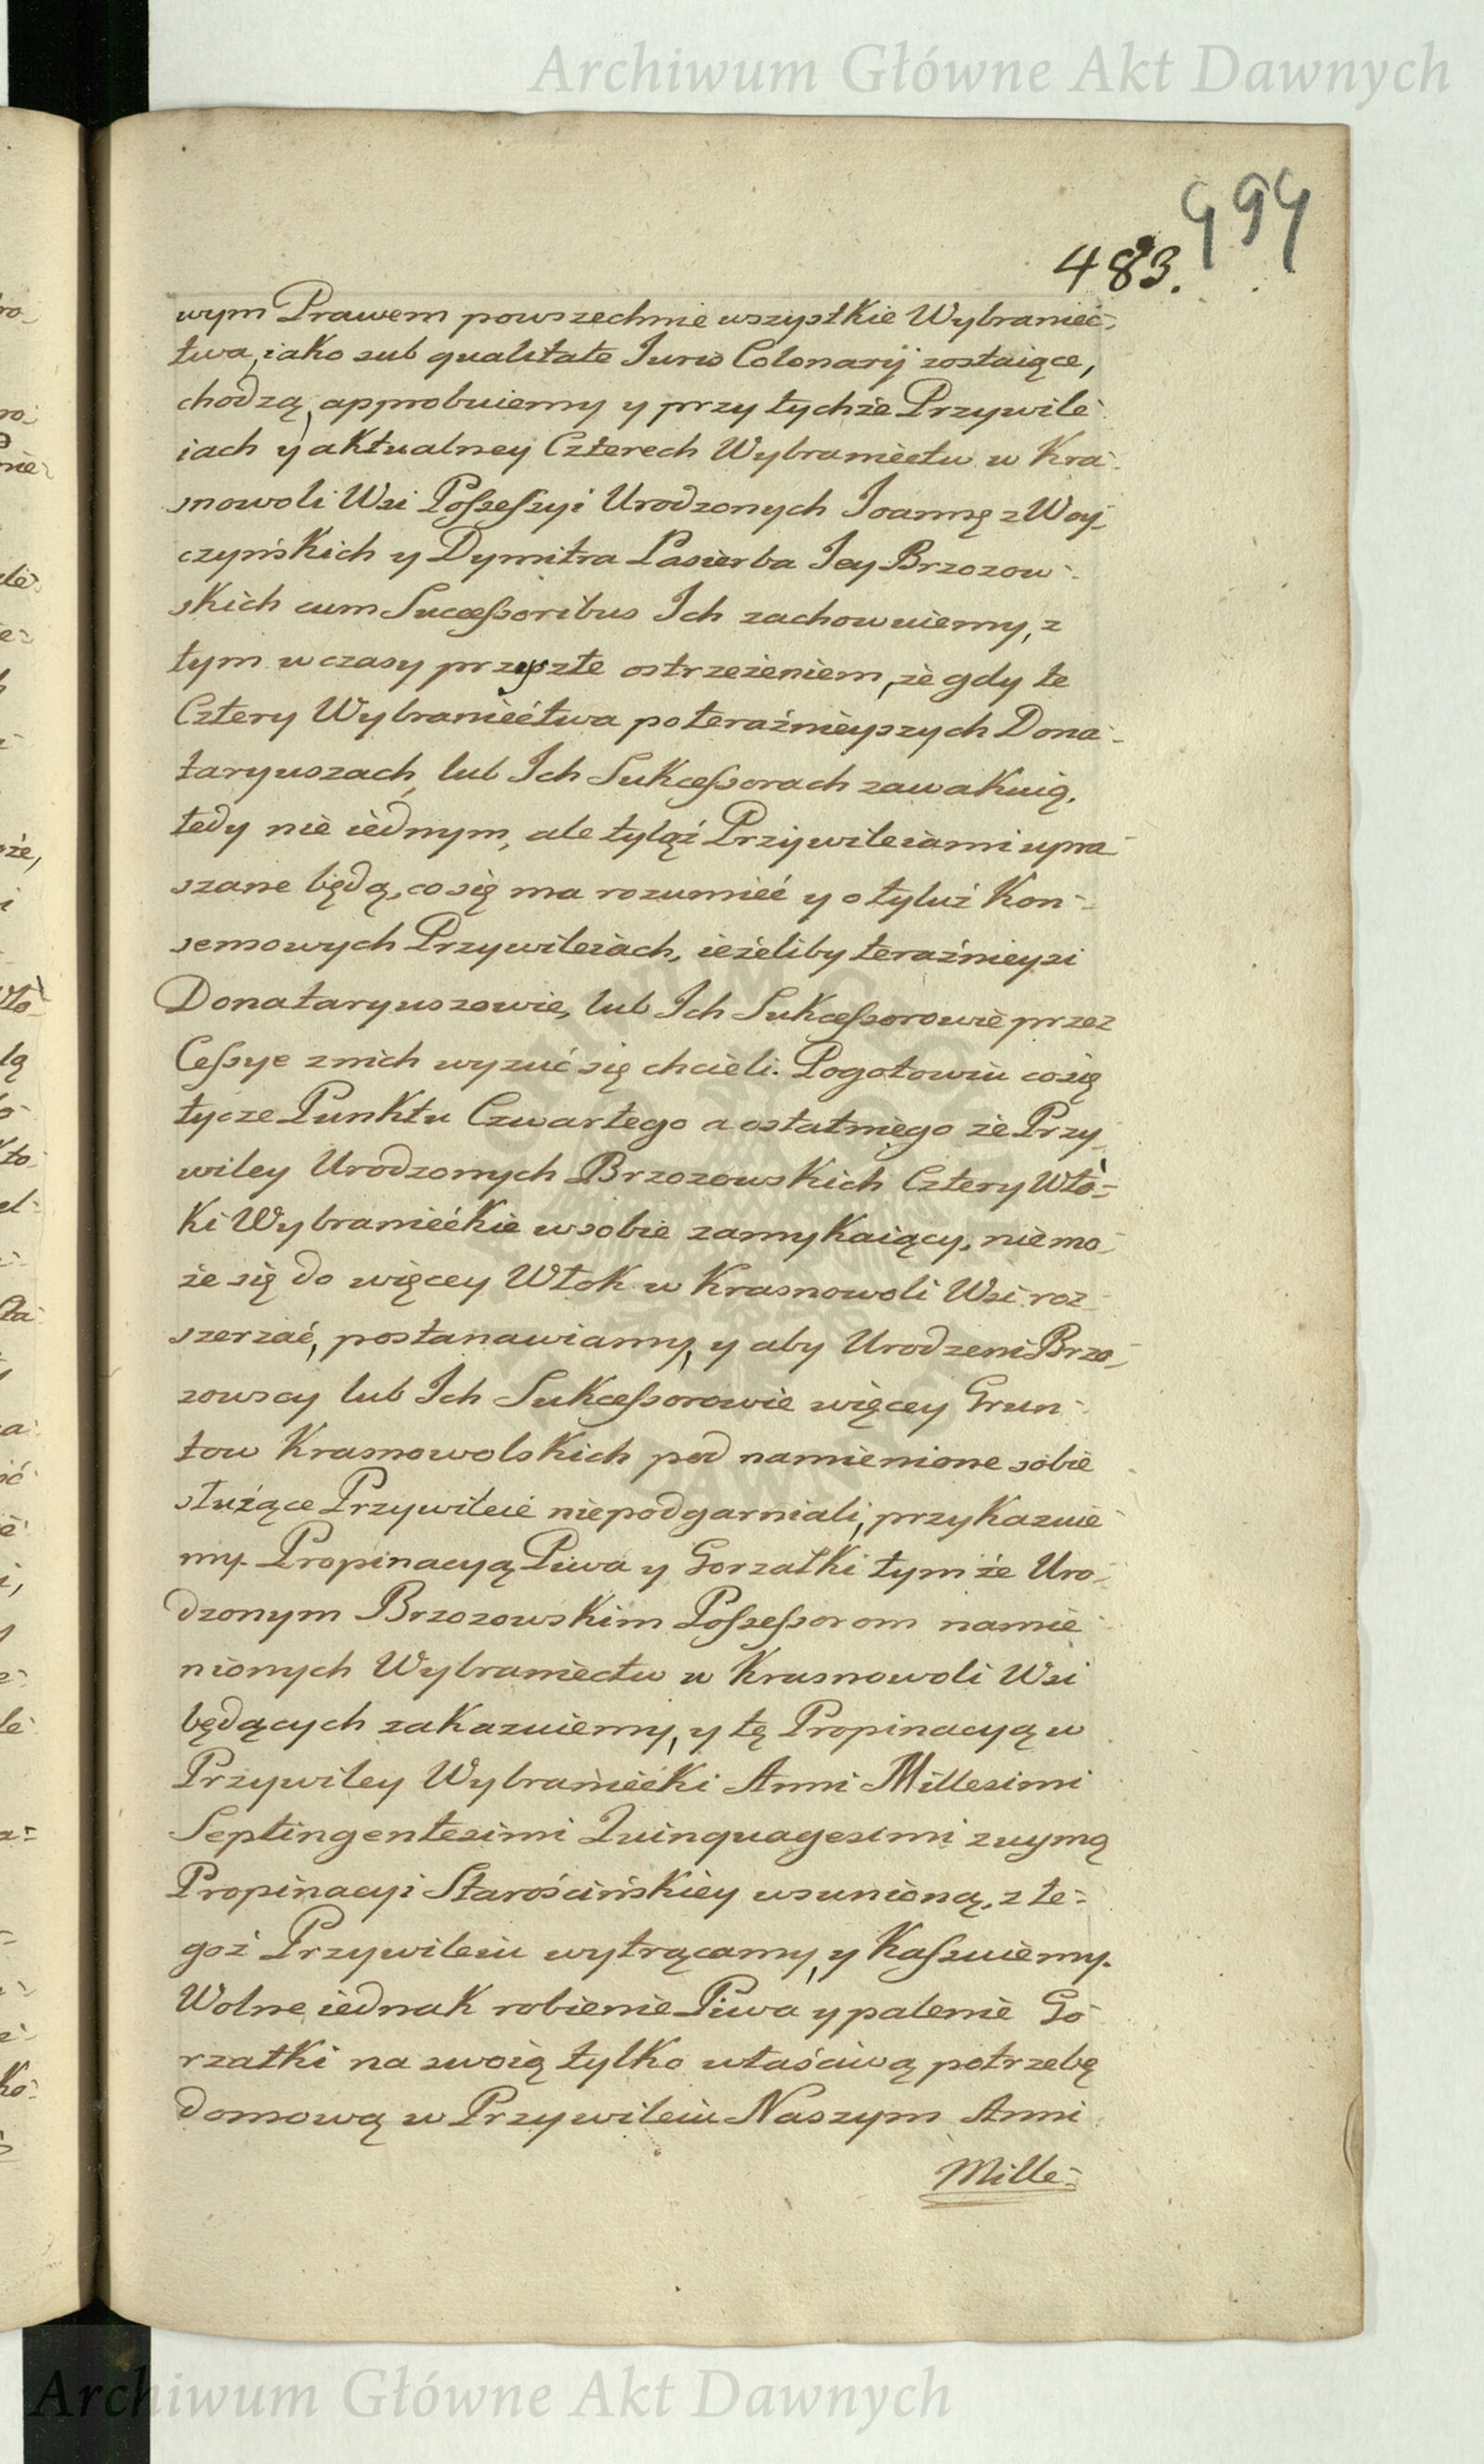 Archiwum Główne Akt Dawnych
494
483.
wym Prawem powszechnie wszystkie Wybraniec-
twa, iako sub qualitate Iuris Colonarij zostaiące,
chodzą, approbuiemy y przy tychże Przywile-
iach y aktualney Czterech Wybraniectw w Kra-
snowoli Wsi Possessyi Urodzonych Ioannę z Woy-
czyńskich y Dymitra Pasierba Iey Brzozow-
skich cum Successoribus Ich zachowuiemy, z
tym w czasy przyszłe ostrzeżeniem, że gdy te
Cztery Wybraniectwa po teraźnieyszych Dona-
taryuszach, lub Ich Sukcessorach zawakuią,
tedy nie iednym, ale tyląż Przywileiami upra-
szane będą, co się ma rozumieć y o tyluż Kon-
sensowych Przywileiach, ieżeliby teraźnieysi
Donataryuszowie, lub Ich Sukcessorowie przez
Cessye z nich wyzuć się chcieli. Pogotowiu co się
tycze Punktu Czwartego a ostatniego że Przy-
wiley Urodzonych Brzozowskich Cztery Wło-
ki Wybranieckie w sobie zamykaiący, nie mo-
że się do więcey Włok w Krasnowoli Wsi roz-
szerzać, postanawiamy, y aby Urodzeni Brzo-
zowscy lub Ich Sukcessorowie więcey Grun-
tow Krasnowolskich pod namienione sobie
służące Przywileie niepodgarniali, przykazuie-
my. Propinacyą Piwa y Gorzałki tymże Uro-
dzonym Brzozowskim Possessorom namie-
nionych Wybraniectw w Krasnowoli Wsi
będących zakazuiemy, y tę Propinacyą w
Przywiley Wybraniecki Anni Millesimi
Septingentesimi Quinquagesimi z uymą
Propinacyi Starościńskiey wsunioną, z te-
goż Przywileiu wytrącamy, y Kassuiemy.
Wolne iednak robienie Piwa y palenie Go-
rzałki na swoią tylko właściwą potrzebę
domową w Przywileiu Naszym Anni
Mille-
Archiwum Główne Akt Dawnych